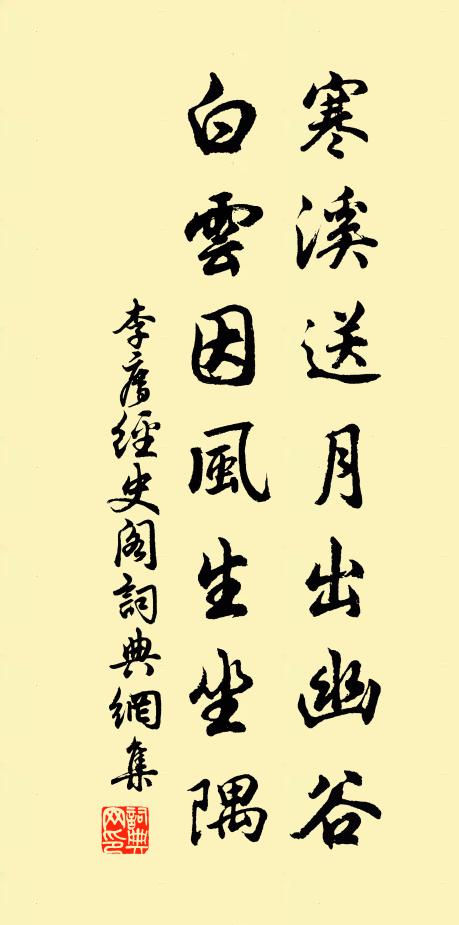 寒溪送月出幽谷
白雲因風生坐隅
李廌經史閣詞典網集
詞典網印